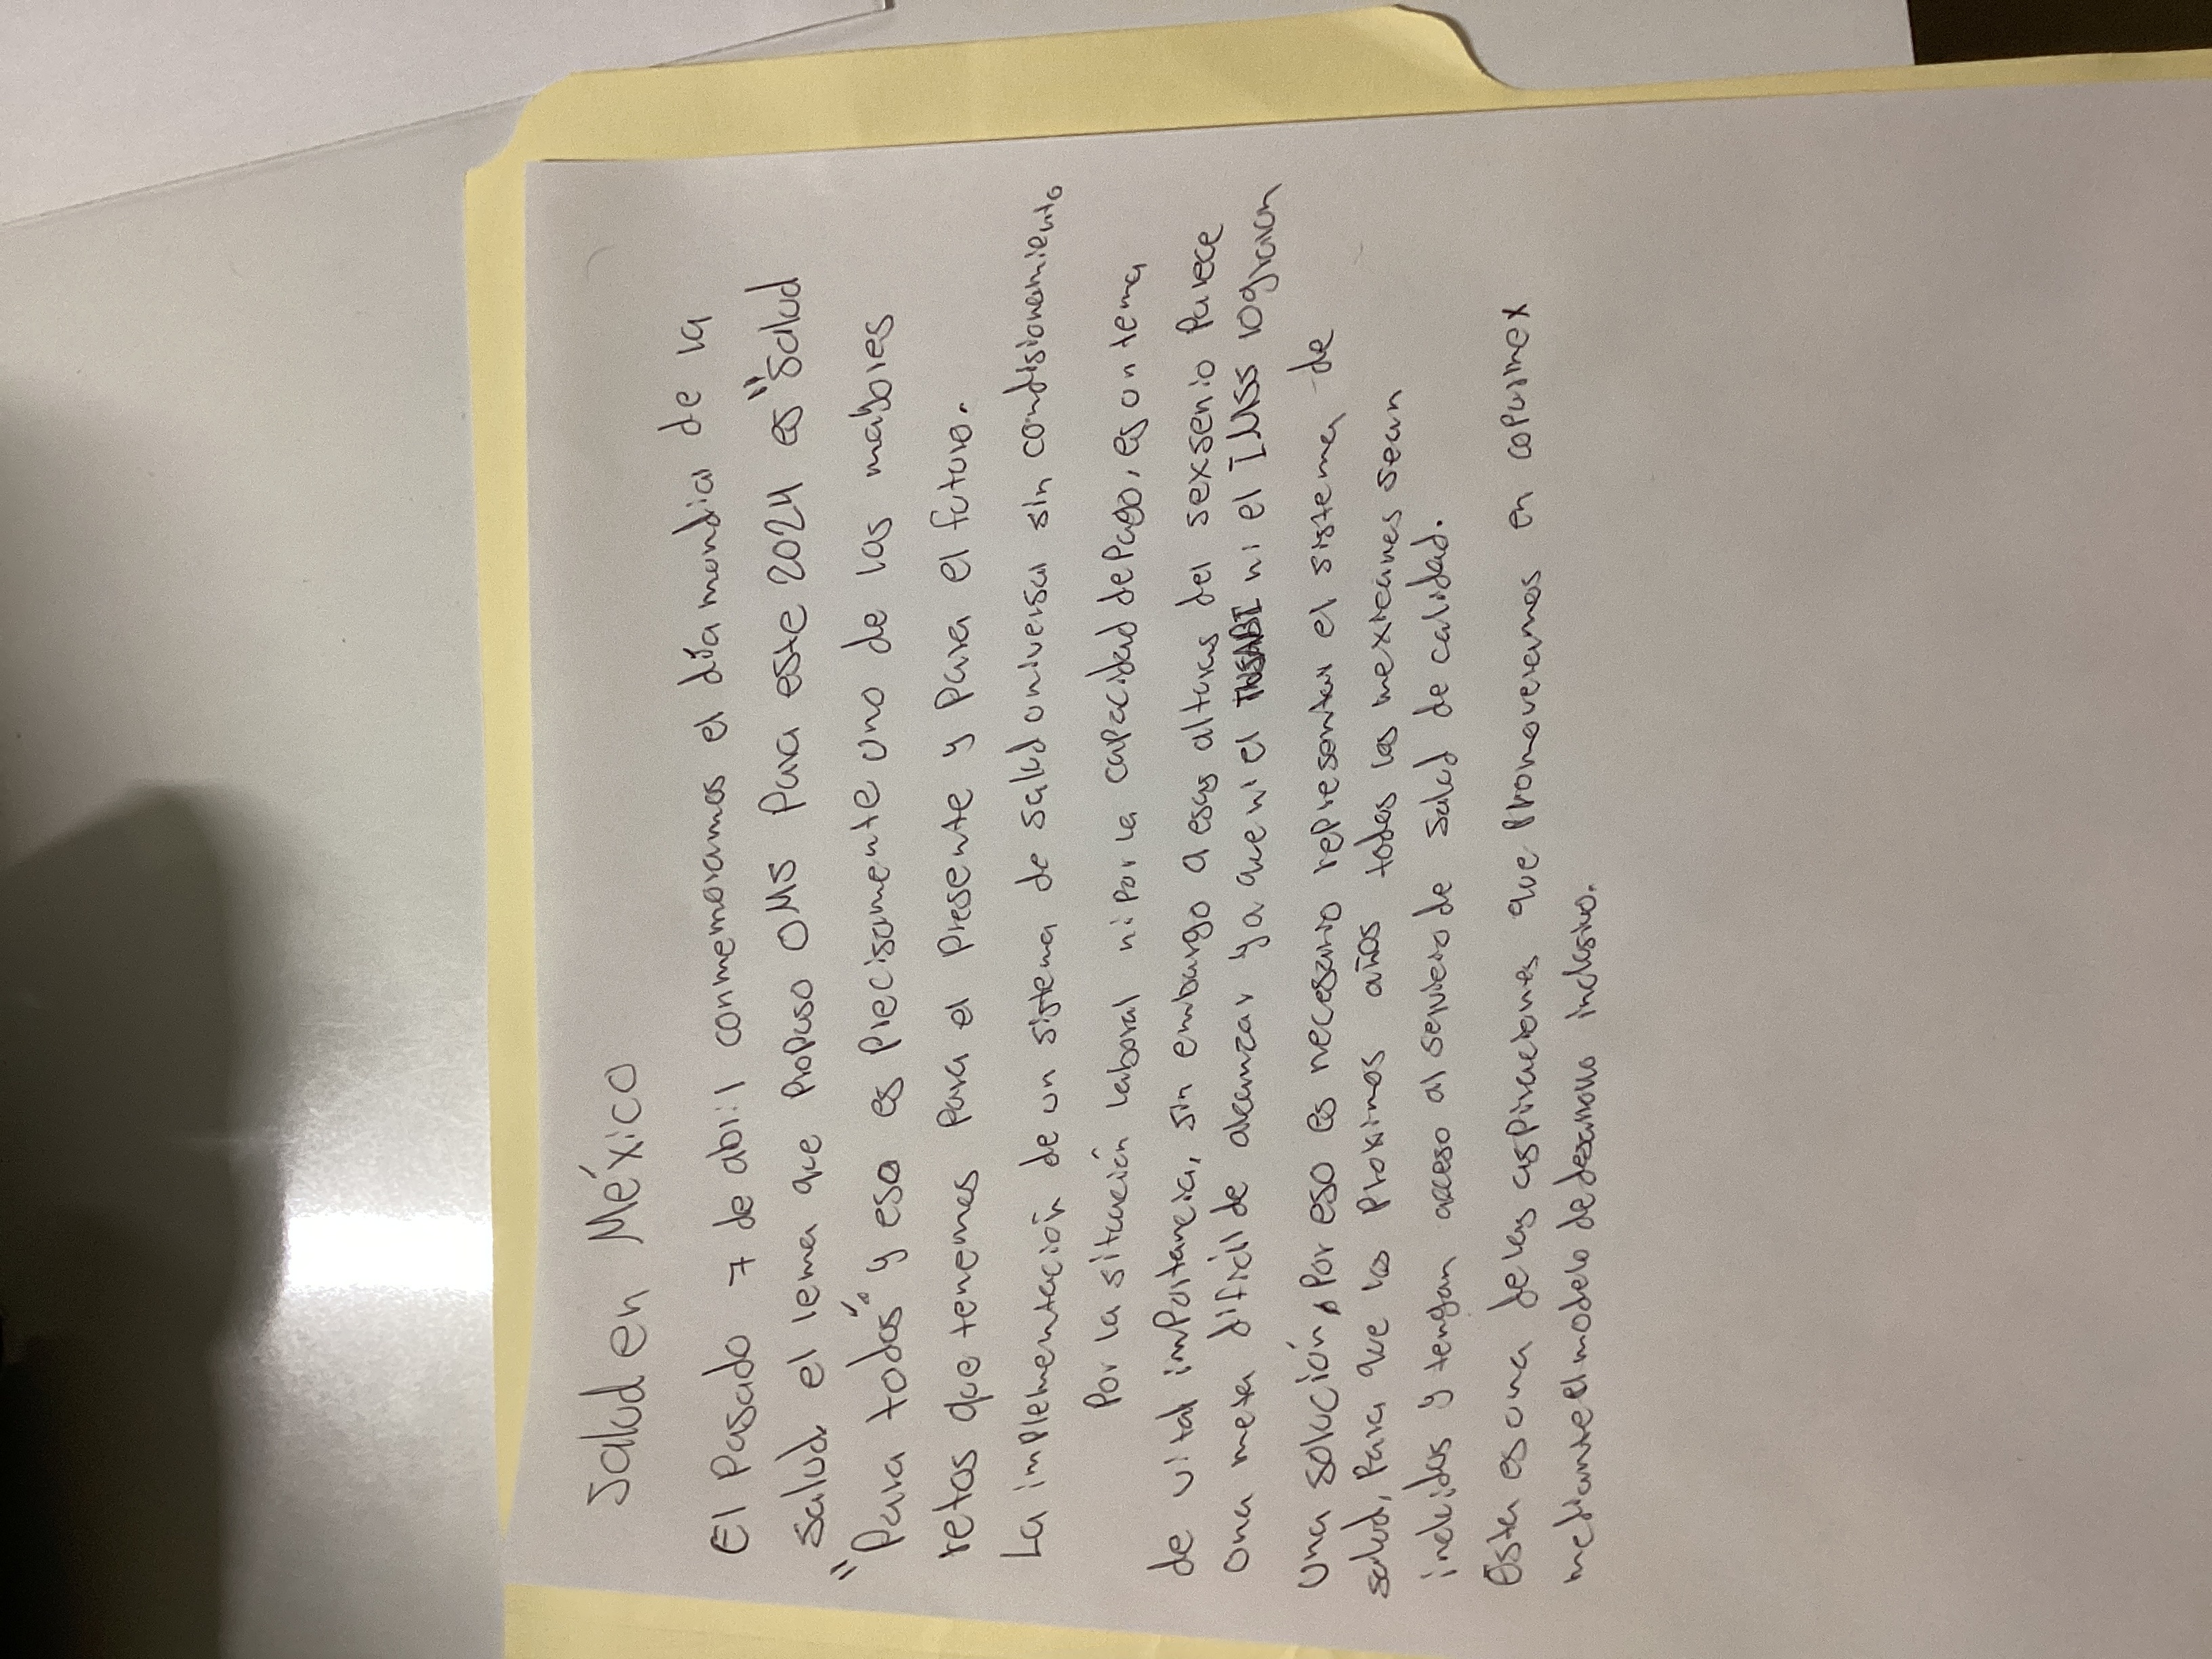 Salud en México
El Pasado 7 de abril conmemoramos el día mundial de la
salud el lema que Propuso OMS Para este 2024 es "Salud
"Para todos" y eso es Precisamente uno de las mayores
retos que tenemos Para el Presente y Para el futuro.
La implementación de un sistema de salud universal sin condisionamiento
Por la situación laboral ni Por la capacidad de Pago, es un tema
de vital importancia, sin embargo a esas alturas del sexsenio Parece
una meta dificil de alcanzar ya que ni el INSABI ni el IMSS lograron
una solución, Por eso es necesario representar el sistema de
salud, Para que los Proximos años todos los mexicanos sean
incluidos y tengan acceso al servicio de salud de calidad.
Esta es una de las aspiraciones que Promoveremos en coparmex
mediante el modelo de desarrollo inclusivo.